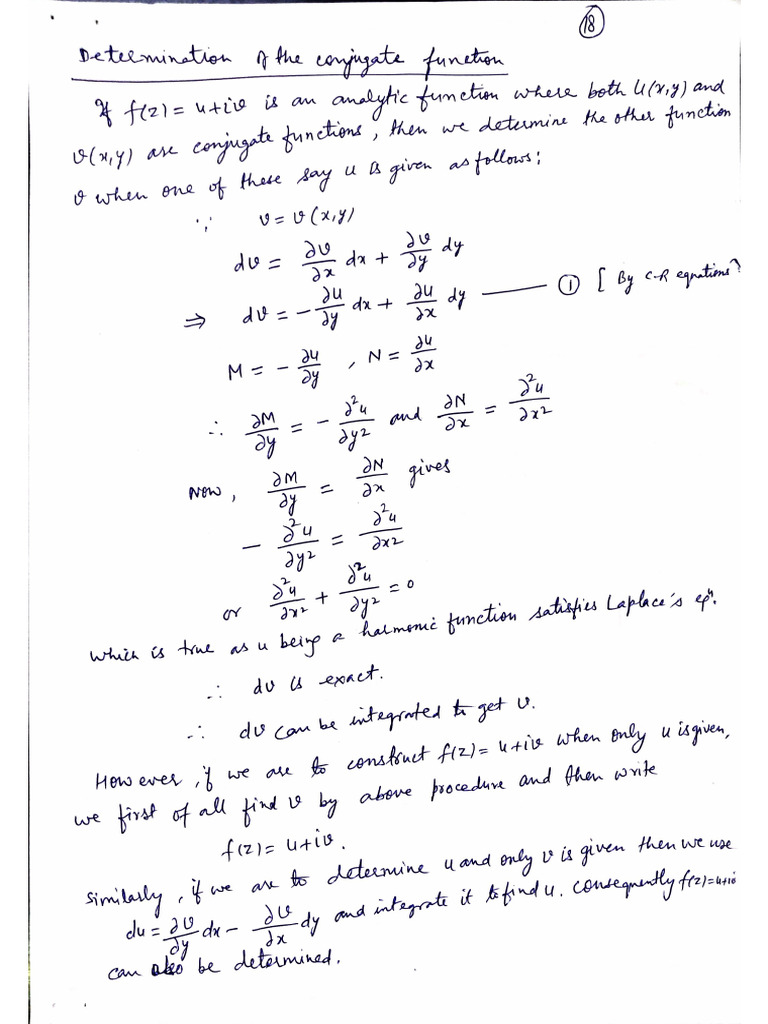 18
Determination of the conjugate function
If f(z) = u+iv is an analytic function where both u(x,y) and
v(x,y) are conjugate functions, then we determine the other function
v when one of these say u is given as follows:
∵ v = v(x,y)
dv = ∂v/∂x dx + ∂v/∂y dy
⇒ dv = -∂u/∂y dx + ∂u/∂x dy —— ① [By C-R equations]
M = -∂u/∂y , N = ∂u/∂x
∴ ∂M/∂y = -∂²u/∂y² and ∂N/∂x = ∂²u/∂x²
Now, ∂M/∂y = ∂N/∂x gives
-∂²u/∂y² = ∂²u/∂x²
or ∂²u/∂x² + ∂²u/∂y² = 0
which is true as u being a harmonic function satisfies Laplace's eqⁿ.
∴ dv is exact.
∴ dv can be integrated to get v.
However, if we are to construct f(z) = u+iv when only u is given,
we first of all find v by above procedure and then write
f(z) = u+iv.
Similarly, if we are to determine u and only v is given then we use
du = ∂v/∂y dx - ∂v/∂x dy and integrate it to find u. Consequently f(z)=u+iv
can also be determined.